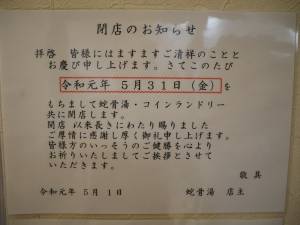 閉店のお知らせ
拝啓 皆様にはますますご清祥のことと
お慶び申し上げます。さてこのたび
令和元年 5月31日(金)を
もちまして蛇骨湯・コインランドリー
共に閉店します。
開店 以来長きにわたり賜りました
ご厚情に感謝し厚く御礼申し上げます。
皆様方のいっそうのご健勝を心より
お祈りいたしましてご挨拶とさせて
いただきます。
敬具
令和元年 5月1日 蛇骨湯 店主